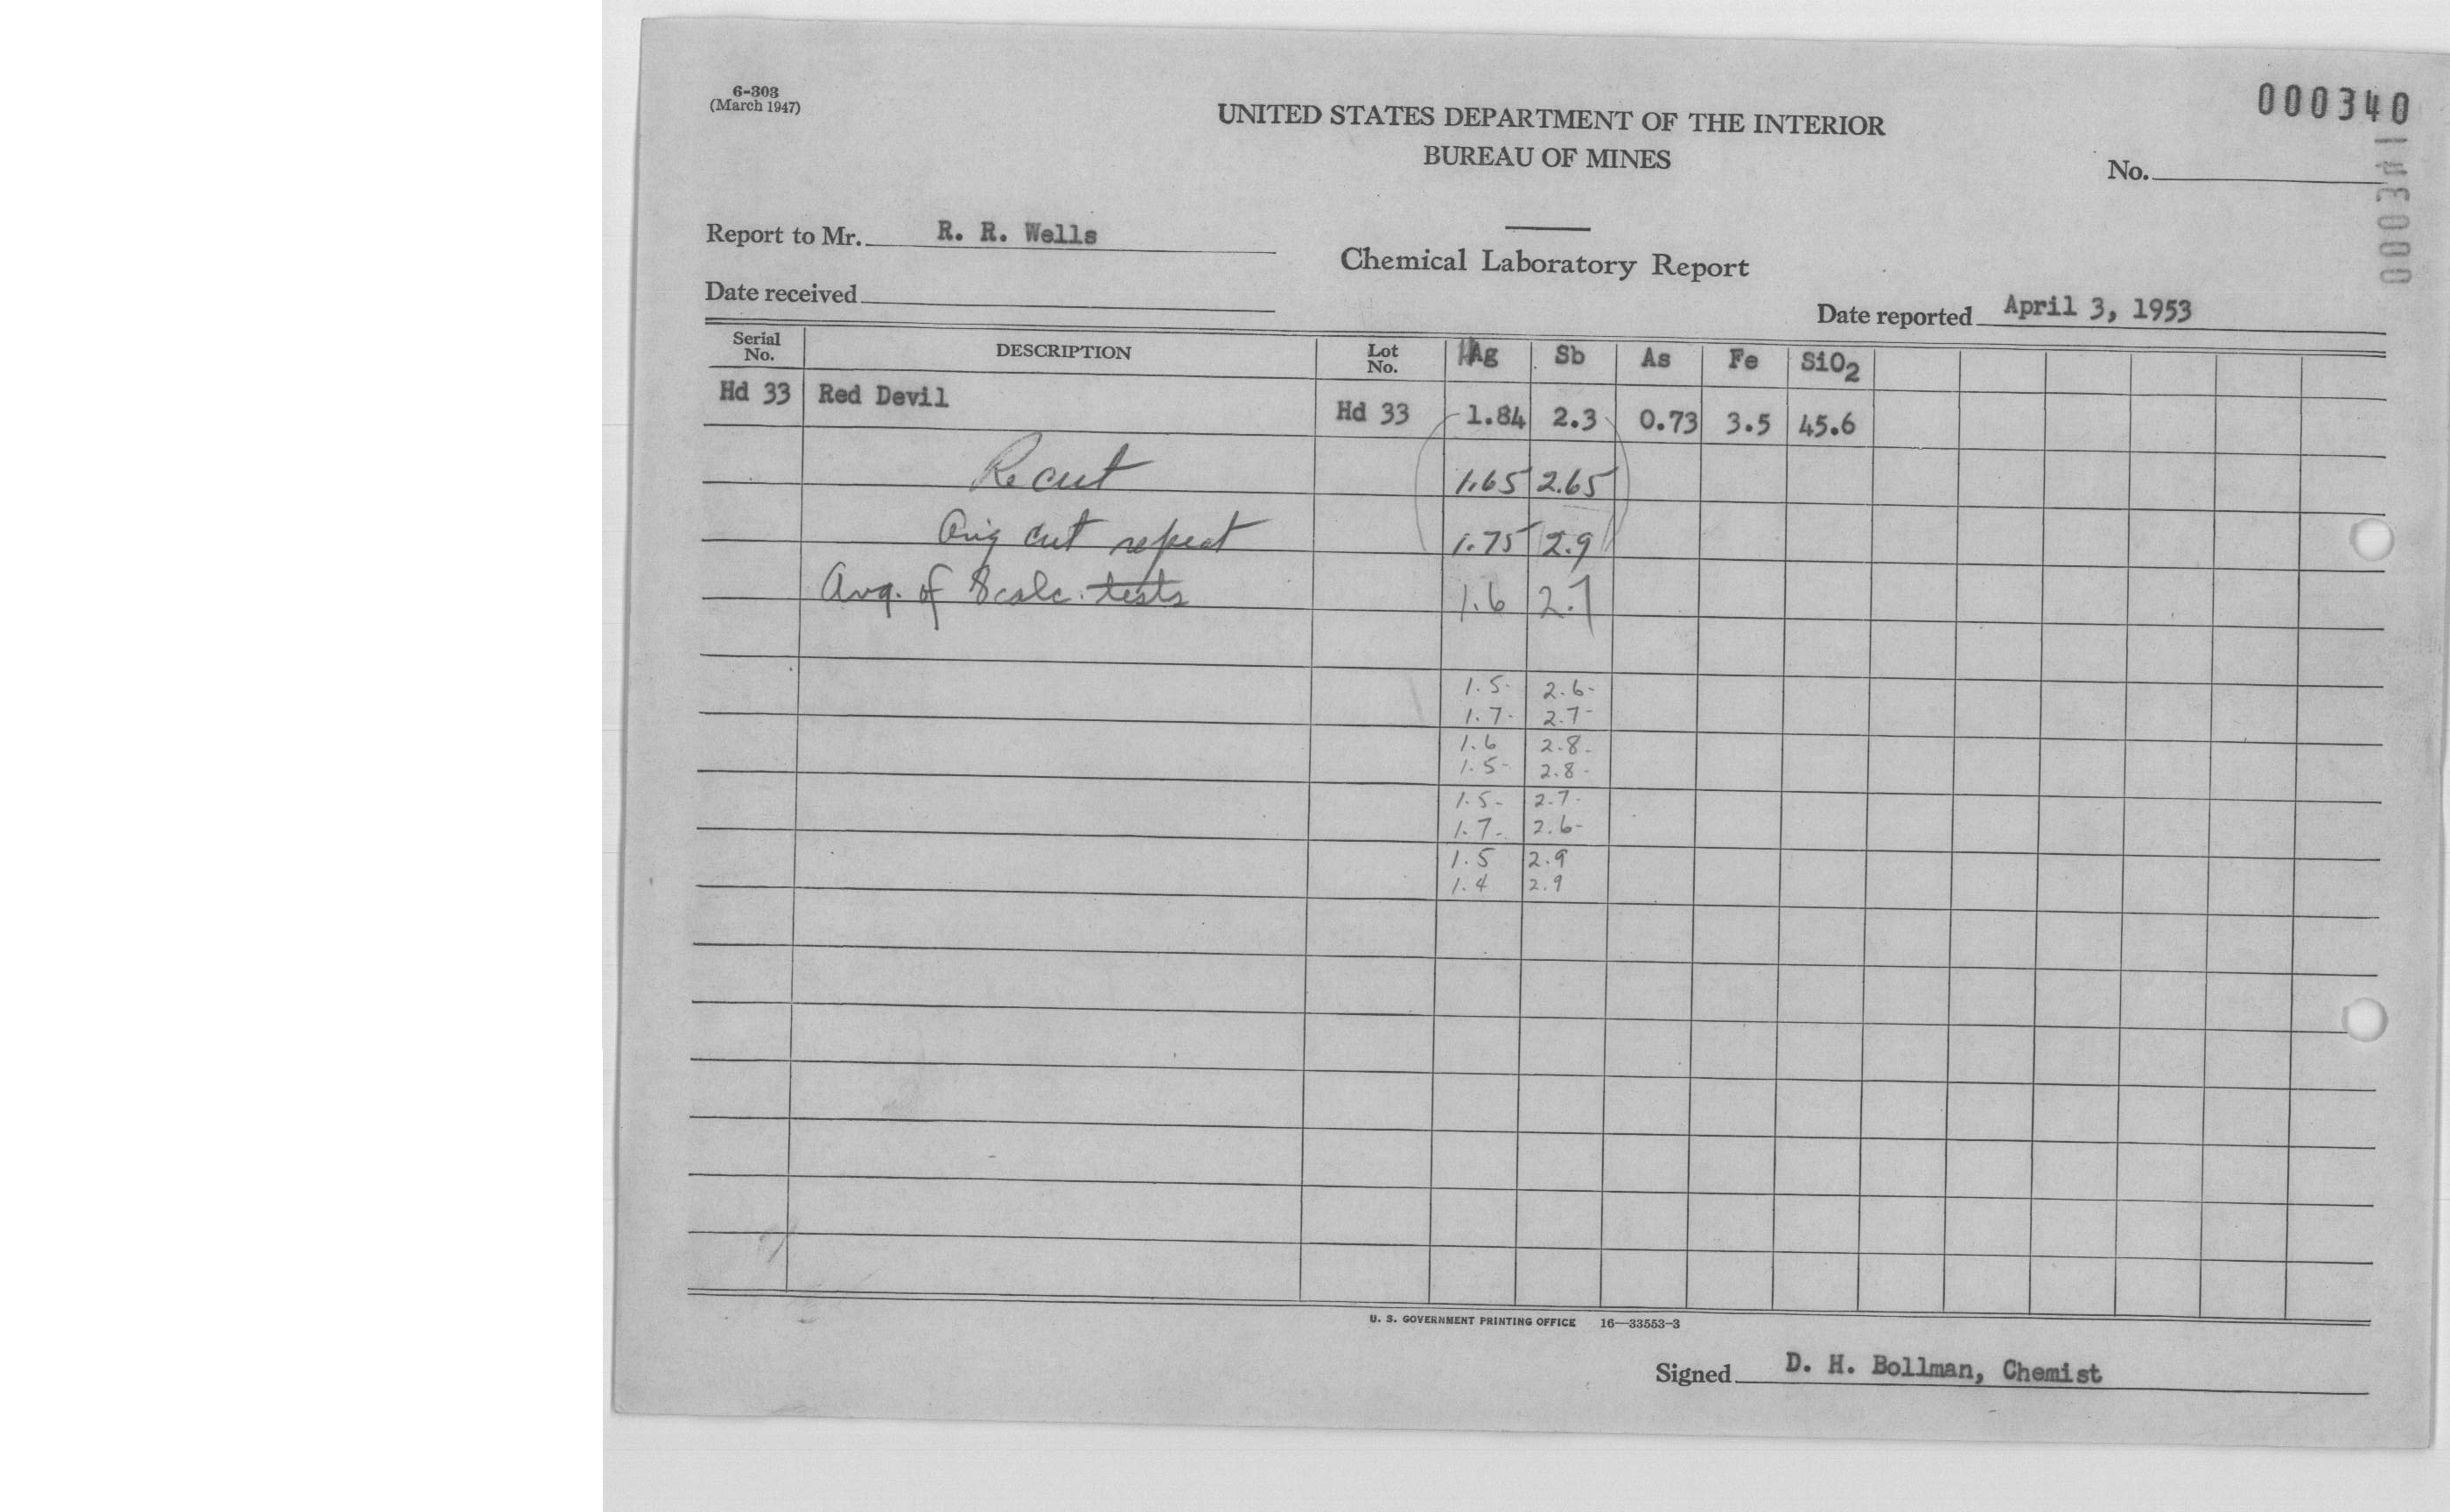 6-303
(March 1947)
000340
000341
UNITED STATES DEPARTMENT OF THE INTERIOR
BUREAU OF MINES
No.
Report to Mr. R. R. Wells
Chemical Laboratory Report
Date received
Date reported April 3, 1953
Serial No. DESCRIPTION Lot No. Ag Sb As Fe SiO2
Hd 33 Red Devil Hd 33 1.84 2.3 0.73 3.5 45.6
Recut 1.65 2.65
Orig cut repeat 1.75 2.9
Avg. of 8 calc. tests 1.6 2.7
1.5- 2.6-
1.7- 2.7-
1.6 2.8-
1.5- 2.8-
1.5- 2.7-
1.7- 2.6-
1.5 2.9
1.4 2.9
U. S. GOVERNMENT PRINTING OFFICE 16—33553-3
Signed D. H. Bollman, Chemist